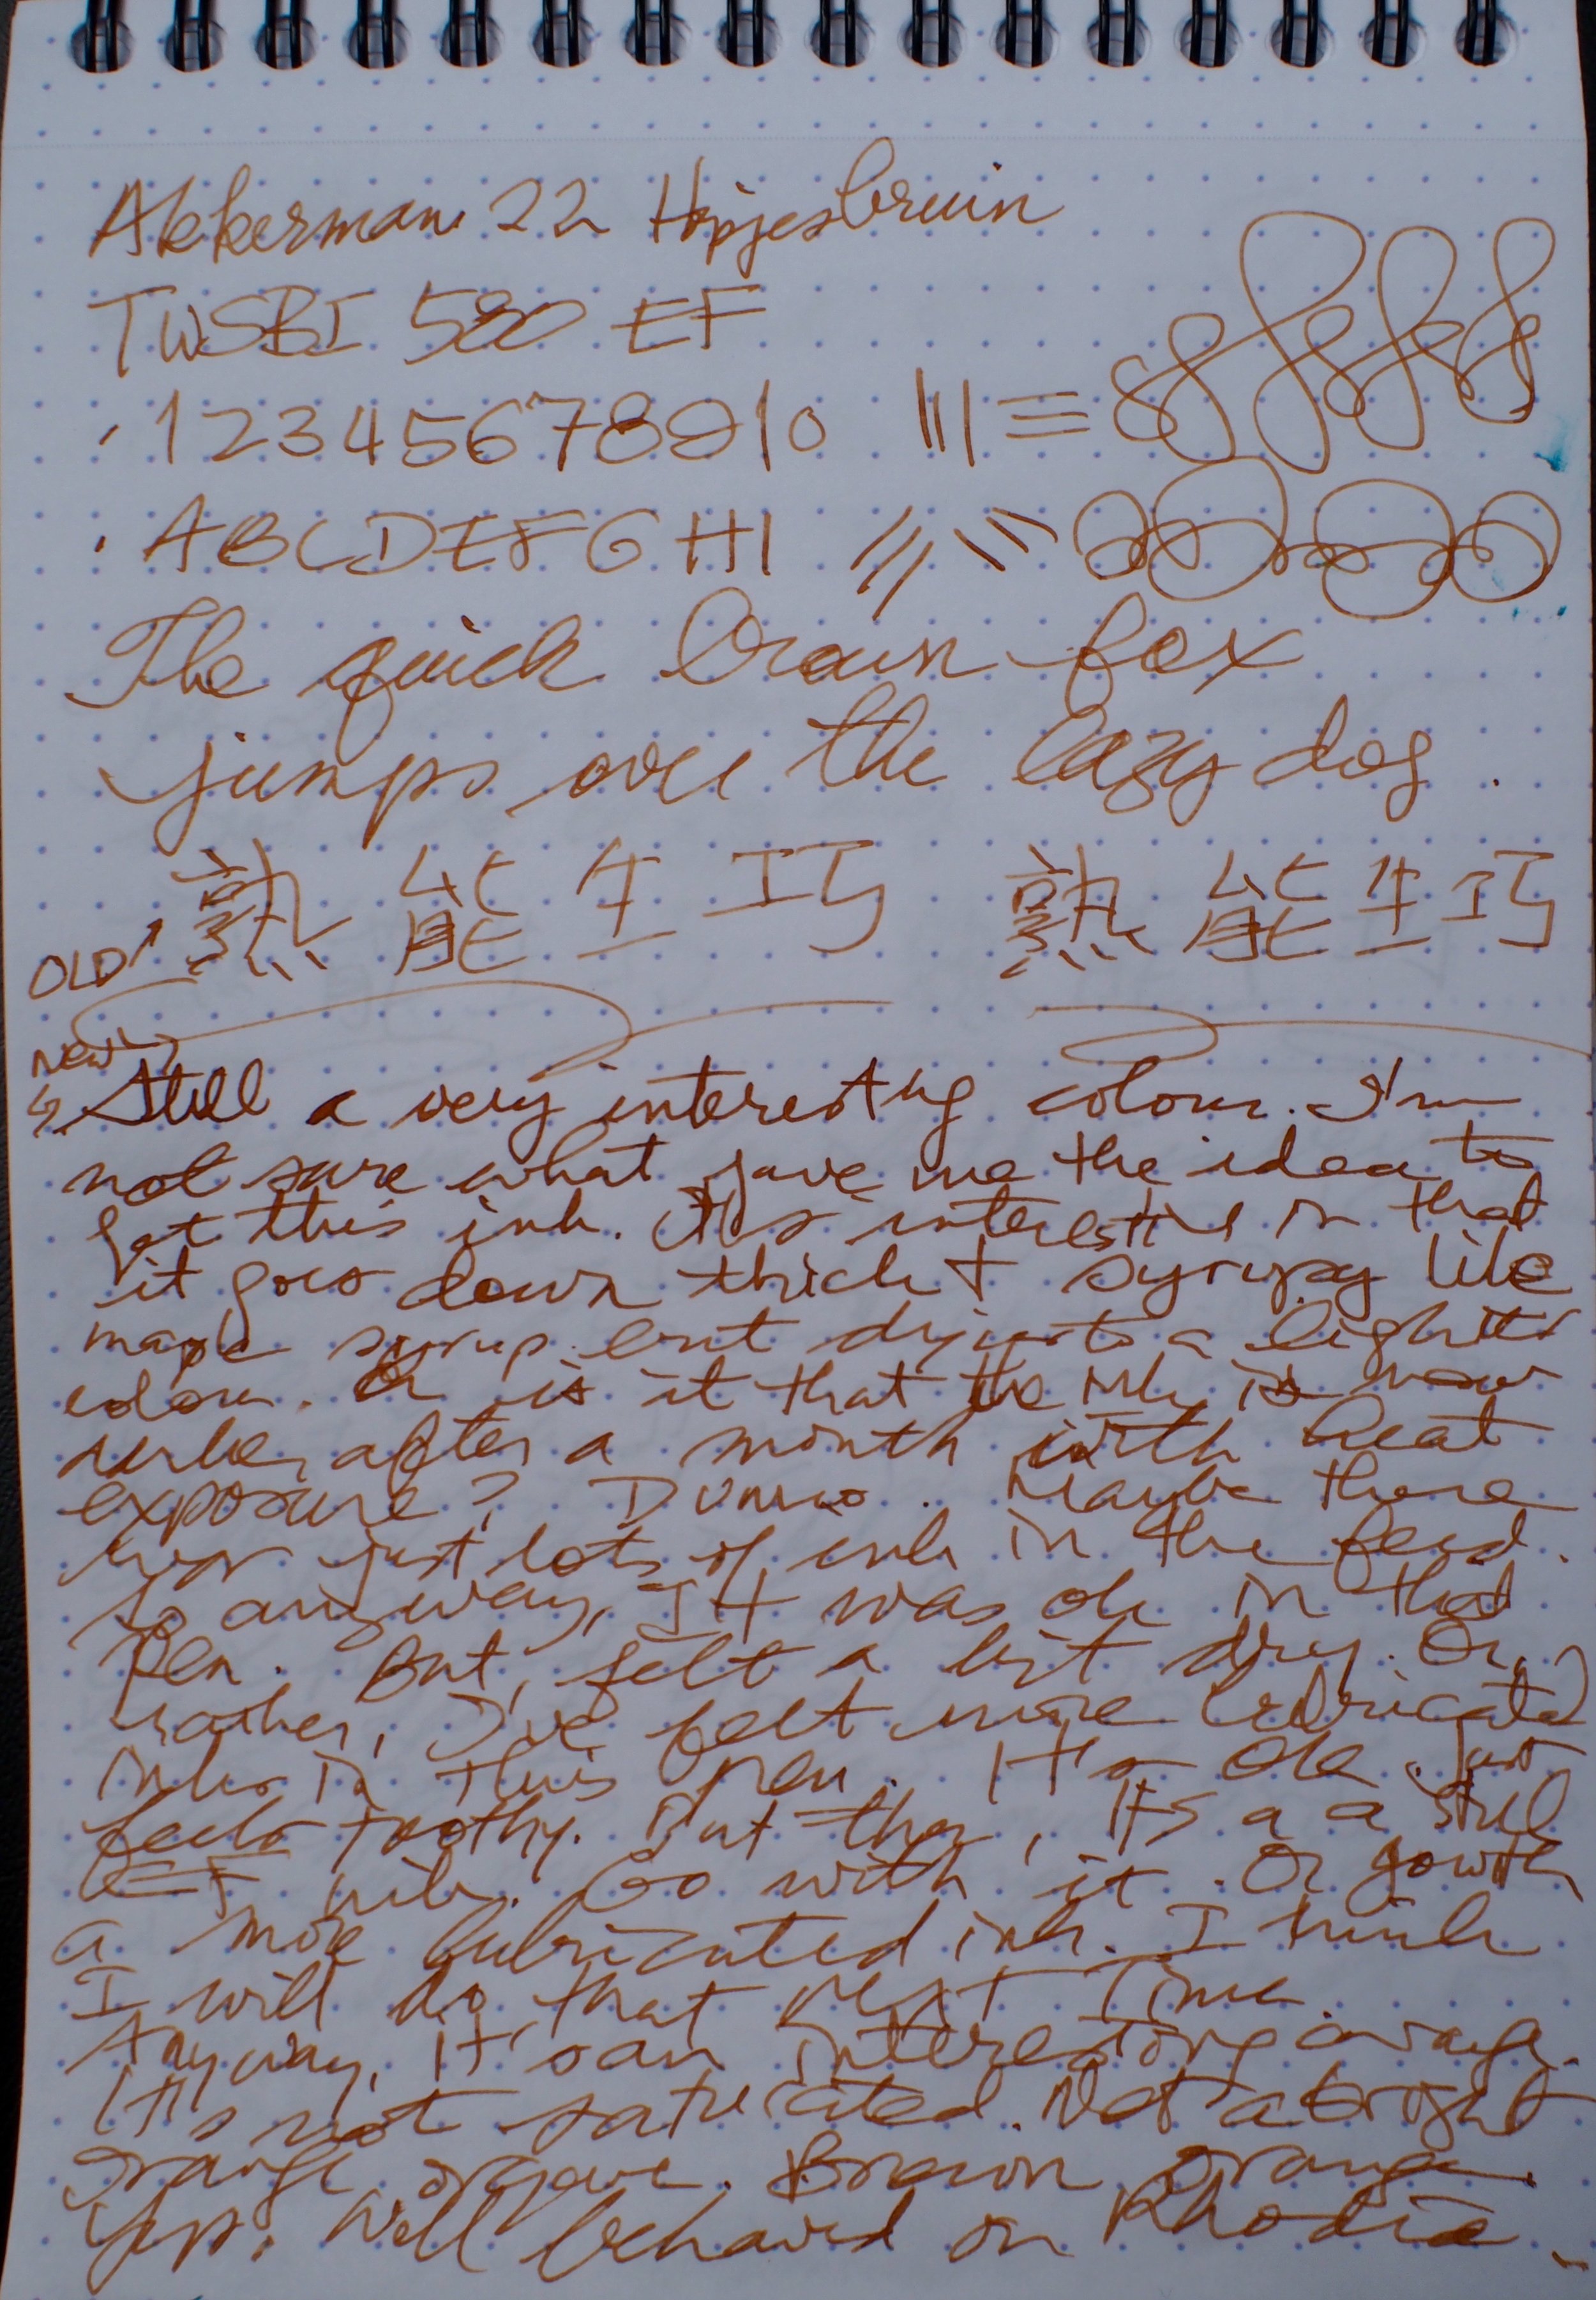 Akkerman 22 Hopjesbruin
TWSBI 580 EF
12345678910
ABCDEFGHI
The quick brown fox
jumps over the lazy dog.
熟能生巧 熟能生巧
OLD
New
Still a very interesting colour. I'm
not sure what gave me the idea to
get this ink. It's interesting in that
it goes down thick + syrupy like
maple syrup but dries to a lighter
colour. Or is it that the ink is now
darker after a month with heat
exposure? Dunno. Maybe there
was just lots of ink in the feed.
So anyway, It was ok in that
Pen. But, felt a bit dry. Or,
rather, I've felt more lubricated
inks in this pen. It's ok. Just
feels toothy. But then, it's a a steel
EF nib. Go with it. Or go with
a more lubricated ink. I think
I will do that next time.
Anyway, it's an interesting orange.
It's not saturated. Not a bright
orange orange. Brown orange.
Yep. Well behaved on Rhodia.